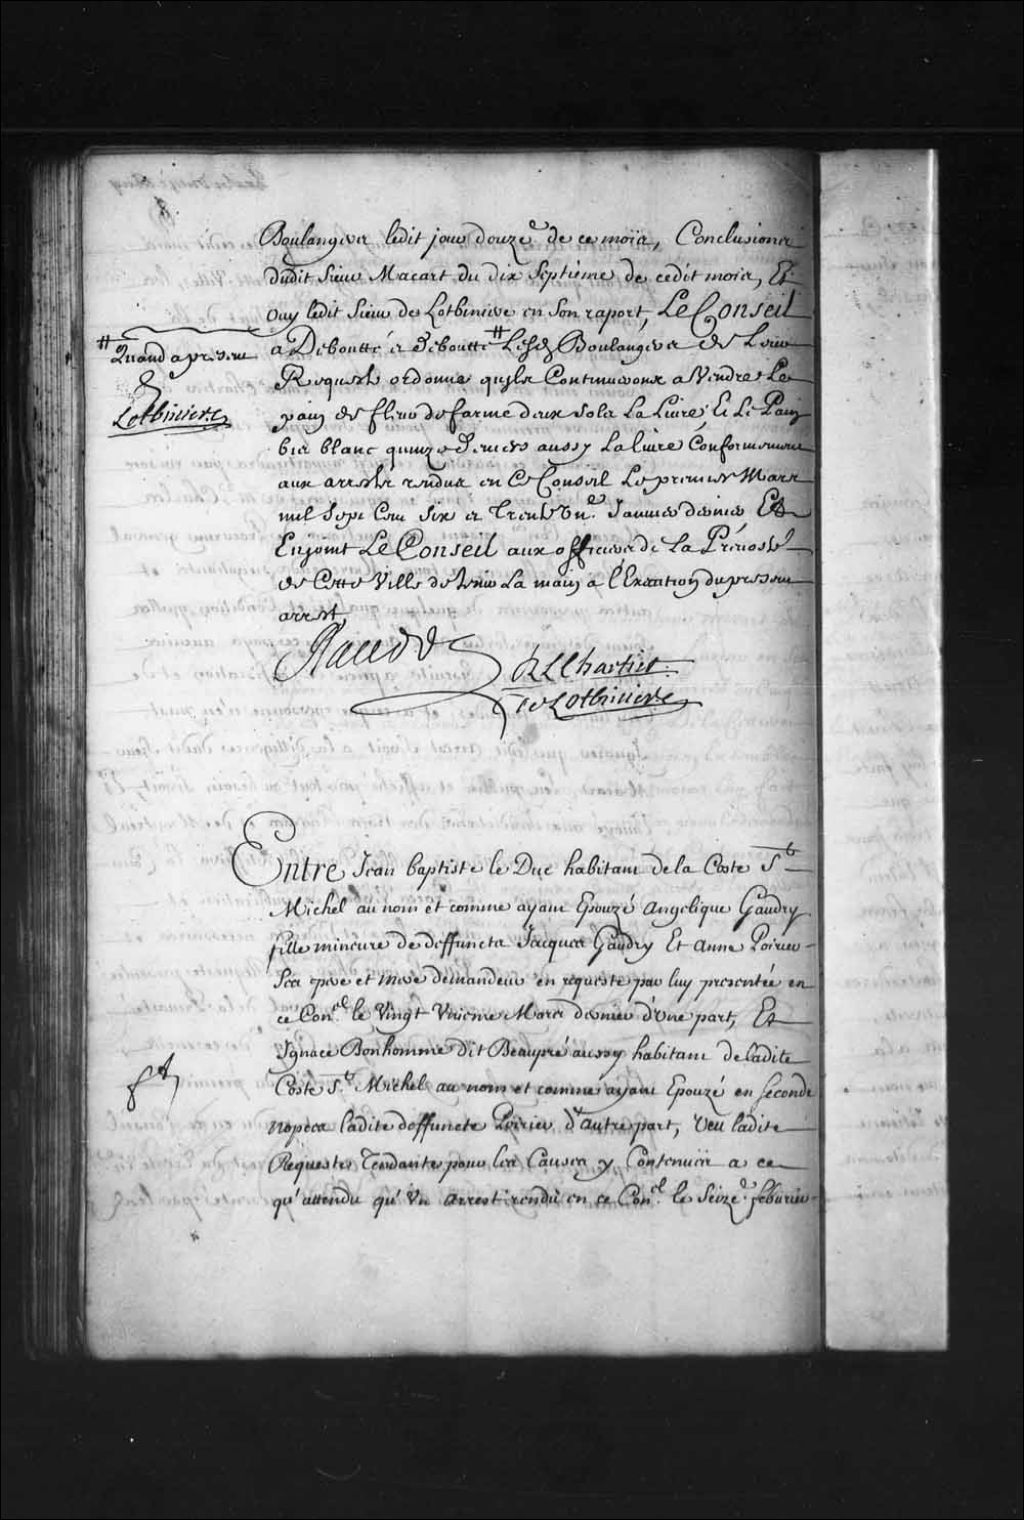 Boulangers ledit jour douze.e de ce mois, Conclusions
dudit Sieur Macart du dix Septième de cedit mois, Et
Ouy ledit Sieur de Lotbiniere en Son raport, Le Conseil
a Deboutté et Deboutte # Lesd. Boulangers de Leur
# Quand apresent
Lotbiniere
Requeste ordonne qu'ils Continueront a Vendre Le
pain de fleur de farine deux sols La Livre, Et Le Pain
bis blanc quinze deniers aussy La livre Conformement
aux arrests rendus en Ce Conseil Le premier Mars
mil Sept Cent Six et Trente Un.e Janvier dernier Et
Enjoint Le Conseil aux officiers de La Prévosté
de Cette Ville de tenir La main a l'Exécution du present
arrest
Raudot
R L Chartier
De Lotbiniere
Entre Jean baptiste le Duc habitant de la Coste St
Michel au nom et comme ayant Epouzé Angelique Gaudry
fille mineure de deffuncts Jacques Gaudry Et Anne Poirier
Ses pere et mere demandeur en requeste par luy presentée en
ce Con.el le Vingt Unieme Mars dernier d'Une part, Et
Ignace Bonhomme dit Beaupré aussy habitant de ladite
Coste St. Michel au nom et comme ayant Epouzé en seconde
nopces ladite deffuncte Poirier d'autre part, Veu ladite
Requeste Tendante pour les Causes y Contenues a ce
qu'attendu qu'Un arrest rendu en ce Con.el le Seize.e febvrier